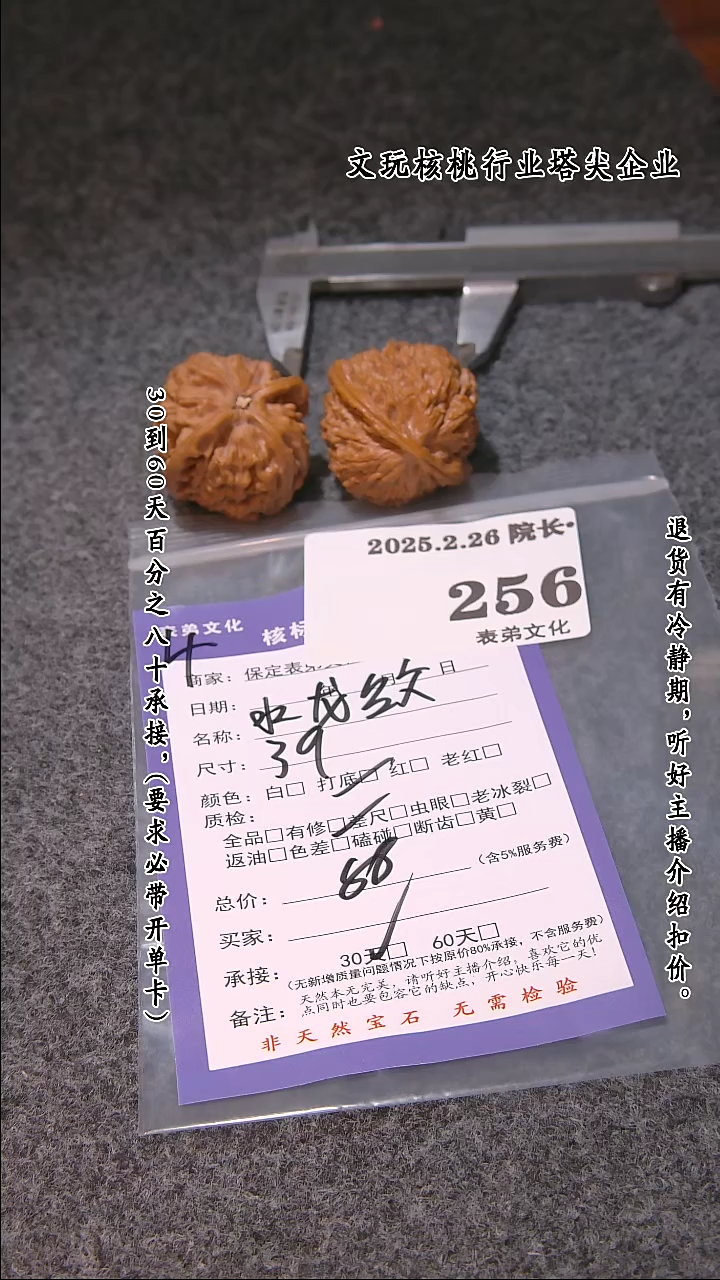 文玩核桃行业塔尖企业
30到60天百分之八十承接，(要求必带开单卡)
退货有冷静期，听好主播介绍扣价。
2025.2.26 院长·
256
表弟文化
表弟文化 核标
4
商家：保定表弟
日期： 年 月 日
名称：水龙纹
尺寸：39
颜色：白□ 打底□ 红□ 老红□
质检：
全品□有修□差尺□虫眼□老冰裂□
返油□色差□磕碰□断齿□黄□
总价：86（含5%服务费）
买家：
承接：30天□ 60天□
（无新增质量问题情况下按原价80%承接，不含服务费）
备注：天然本无完美，请听好主播介绍；喜欢它的优
点同时也要包容它的缺点，开心快乐每一天！
非天然宝石 无需检验